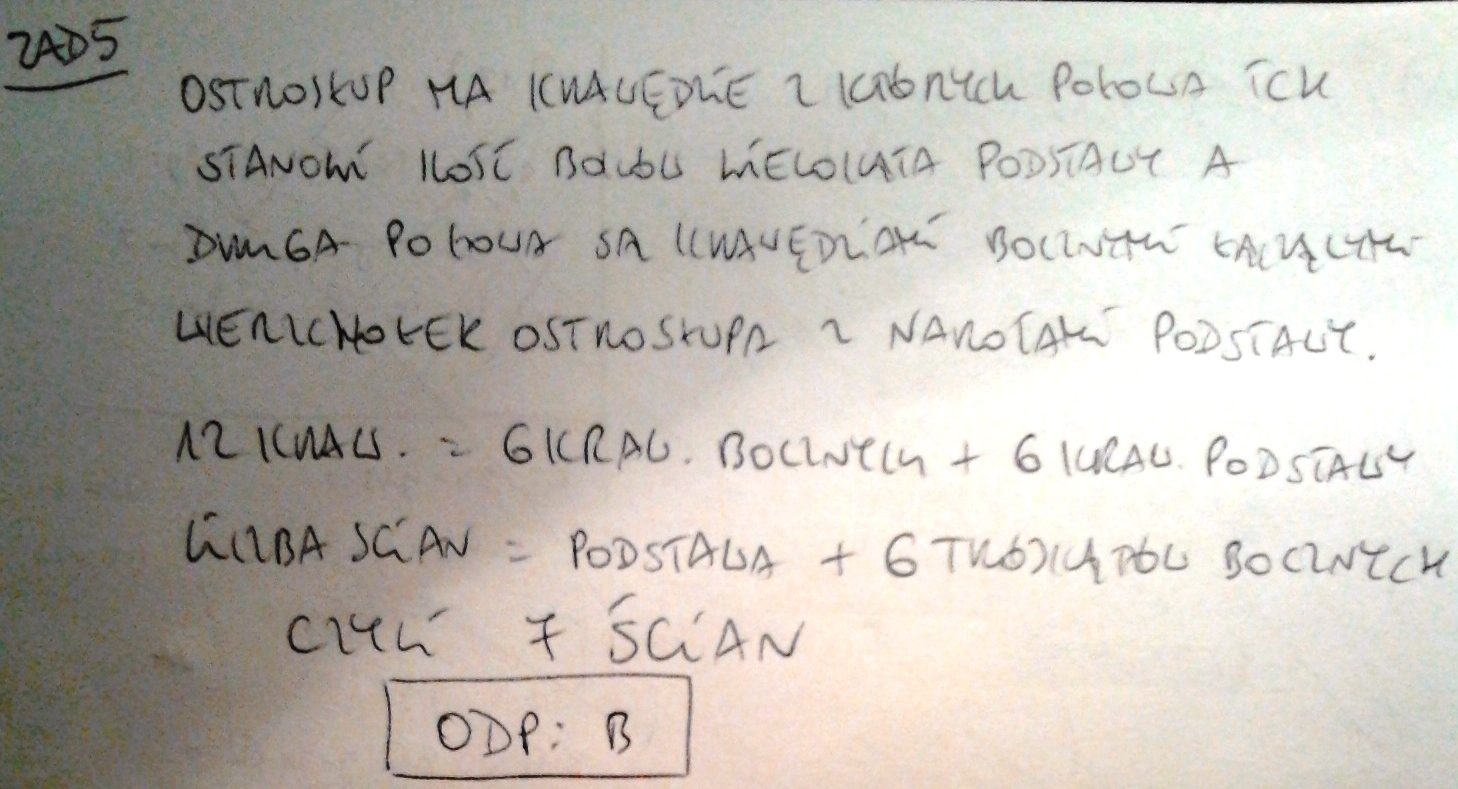 ZAD5
OSTROSŁUP MA KRAWĘDZIE Z KTÓRYCH POŁOWA ICH
STANOWI ILOŚĆ BOKÓW WIELOKĄTA PODSTAWY A
DRUGA POŁOWA SĄ KRAWĘDZIAMI BOCZNYMI ŁĄCZĄCYMI
WIERZCHOŁEK OSTROSŁUPA Z NAROŻAMI PODSTAWY.
12 KRAW. = 6 KRAW. BOCZNYCH + 6 KRAW. PODSTAWY
LICZBA ŚCIAN = PODSTAWA + 6 TRÓJKĄTÓW BOCZNYCH
CZYLI 7 ŚCIAN
ODP: B